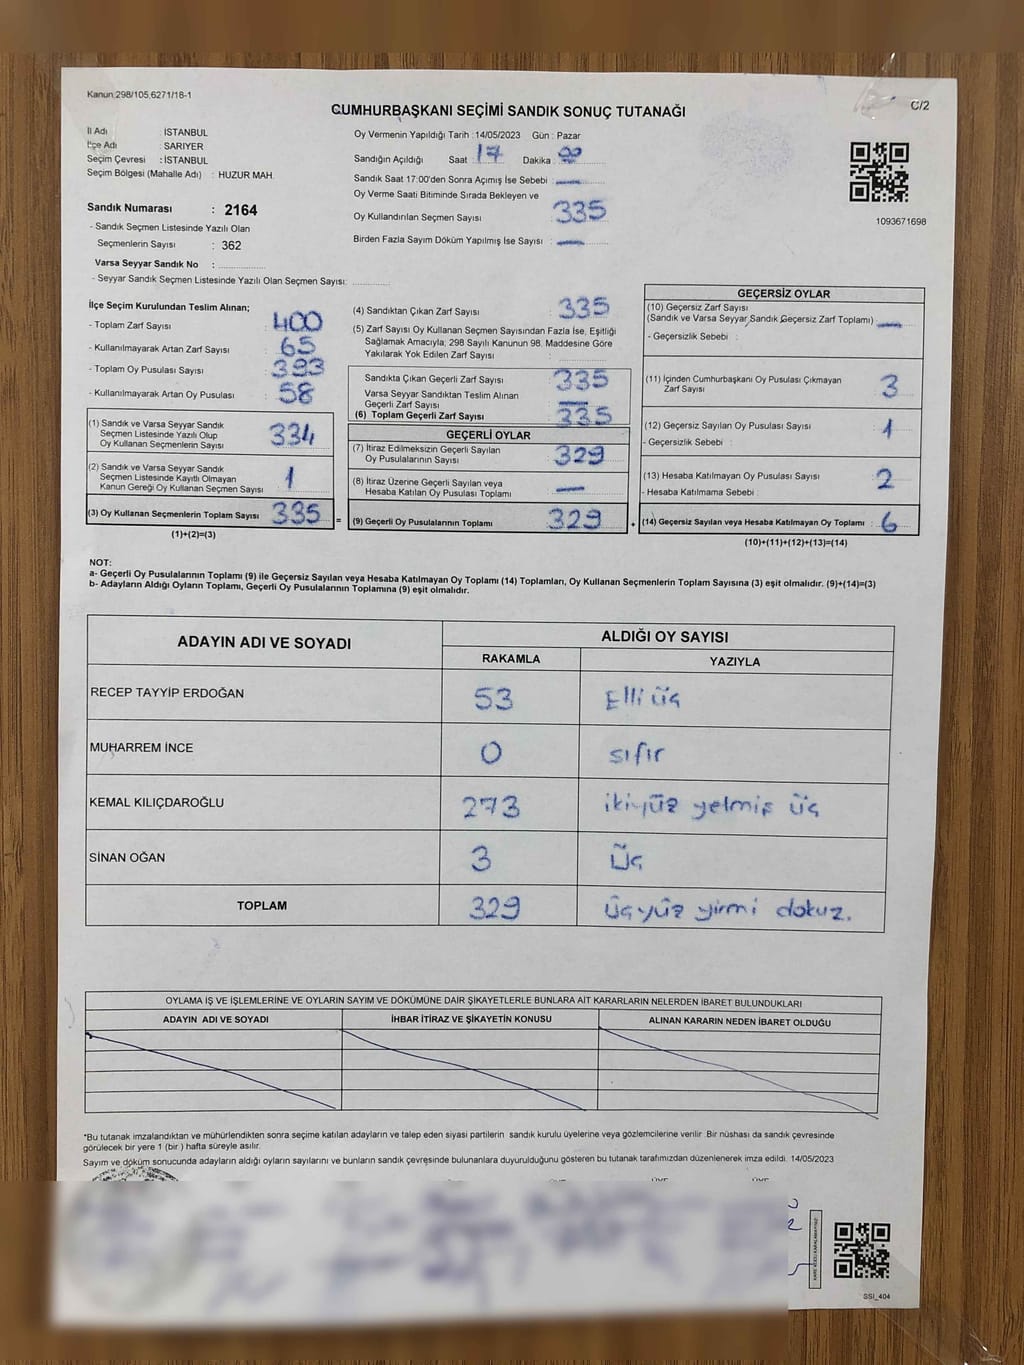 Kanun 298/105,6271/18-1
C/2
CUMHURBAŞKANI SEÇİMİ SANDIK SONUÇ TUTANAĞI
İl Adı : İSTANBUL
İlçe Adı : SARIYER
Seçim Çevresi : İSTANBUL
Seçim Bölgesi (Mahalle Adı) : HUZUR MAH.
Sandık Numarası : 2164
- Sandık Seçmen Listesinde Yazılı Olan
Seçmenlerin Sayısı : 362
Varsa Seyyar Sandık No :
- Seyyar Sandık Seçmen Listesinde Yazılı Olan Seçmen Sayısı:
Oy Vermenin Yapıldığı Tarih : 14/05/2023 Gün : Pazar
Sandığın Açıldığı Saat : 17 Dakika : 00
Sandık Saat 17:00'den Sonra Açımış İse Sebebi : —
Oy Verme Saati Bitiminde Sırada Bekleyen ve
Oy Kullandırılan Seçmen Sayısı : 335
Birden Fazla Sayım Döküm Yapılmış İse Sayısı : —
1093671698
İlçe Seçim Kurulundan Teslim Alınan;
- Toplam Zarf Sayısı : 400
- Kullanılmayarak Artan Zarf Sayısı : 65
- Toplam Oy Pusulası Sayısı : 393
- Kullanılmayarak Artan Oy Pusulası : 58
(1) Sandık ve Varsa Seyyar Sandık
Seçmen Listesinde Yazılı Olup
Oy Kullanan Seçmenlerin Sayısı : 334
(2) Sandık ve Varsa Seyyar Sandık
Seçmen Listesinde Kayıtlı Olmayan
Kanun Gereği Oy Kullanan Seçmen Sayısı : 1
(3) Oy Kullanan Seçmenlerin Toplam Sayısı : 335 =
(1)+(2)=(3)
(4) Sandıktan Çıkan Zarf Sayısı : 335
(5) Zarf Sayısı Oy Kullanan Seçmen Sayısından Fazla İse, Eşitliği
Sağlamak Amacıyla; 298 Sayılı Kanunun 98. Maddesine Göre
Yakılarak Yok Edilen Zarf Sayısı :
Sandıkta Çıkan Geçerli Zarf Sayısı : 335
Varsa Seyyar Sandıktan Teslim Alınan
Geçerli Zarf Sayısı : —
(6) Toplam Geçerli Zarf Sayısı : 335
GEÇERLİ OYLAR
(7) İtiraz Edilmeksizin Geçerli Sayılan
Oy Pusulalarının Sayısı : 329
(8) İtiraz Üzerine Geçerli Sayılan veya
Hesaba Katılan Oy Pusulası Toplamı : —
(9) Geçerli Oy Pusulalarının Toplamı : 329 +
GEÇERSİZ OYLAR
(10) Geçersiz Zarf Sayısı
(Sandık ve Varsa Seyyar Sandık Geçersiz Zarf Toplamı) : —
- Geçersizlik Sebebi :
(11) İçinden Cumhurbaşkanı Oy Pusulası Çıkmayan
Zarf Sayısı : 3
(12) Geçersiz Sayılan Oy Pusulası Sayısı : 1
- Geçersizlik Sebebi :
(13) Hesaba Katılmayan Oy Pusulası Sayısı : 2
- Hesaba Katılmama Sebebi :
(14) Geçersiz Sayılan veya Hesaba Katılmayan Oy Toplamı : 6
(10)+(11)+(12)+(13)=(14)
NOT:
a- Geçerli Oy Pusulalarının Toplamı (9) ile Geçersiz Sayılan veya Hesaba Katılmayan Oy Toplamı (14) Toplamları, Oy Kullanan Seçmenlerin Toplam Sayısına (3) eşit olmalıdır. (9)+(14)=(3)
b- Adayların Aldığı Oyların Toplamı, Geçerli Oy Pusulalarının Toplamına (9) eşit olmalıdır.
ADAYIN ADI VE SOYADI ALDIĞI OY SAYISI
RAKAMLA YAZIYLA
RECEP TAYYİP ERDOĞAN 53 Elli üç
MUHARREM İNCE 0 sıfır
KEMAL KILIÇDAROĞLU 273 ikiyüz yetmiş üç
SİNAN OĞAN 3 Üç
TOPLAM 329 üçyüz yirmi dokuz.
OYLAMA İŞ VE İŞLEMLERİNE VE OYLARIN SAYIM VE DÖKÜMÜNE DAİR ŞİKAYETLERLE BUNLARA AİT KARARLARIN NELERDEN İBARET BULUNDUKLARI
ADAYIN ADI VE SOYADI İHBAR İTİRAZ VE ŞİKAYETİN KONUSU ALINAN KARARIN NEDEN İBARET OLDUĞU
*Bu tutanak imzalandıktan ve mühürlendikten sonra seçime katılan adayların ve talep eden siyasi partilerin sandık kurulu üyelerine veya gözlemcilerine verilir. Bir nüshası da sandık çevresinde
görülecek bir yere 1 (bir) hafta süreyle asılır.
Sayım ve döküm sonucunda adayların aldığı oyların sayılarını ve bunların sandık çevresinde bulunanlara duyurulduğunu gösteren bu tutanak tarafımızdan düzenlenerek imza edildi. 14/05/2023
SSI_404